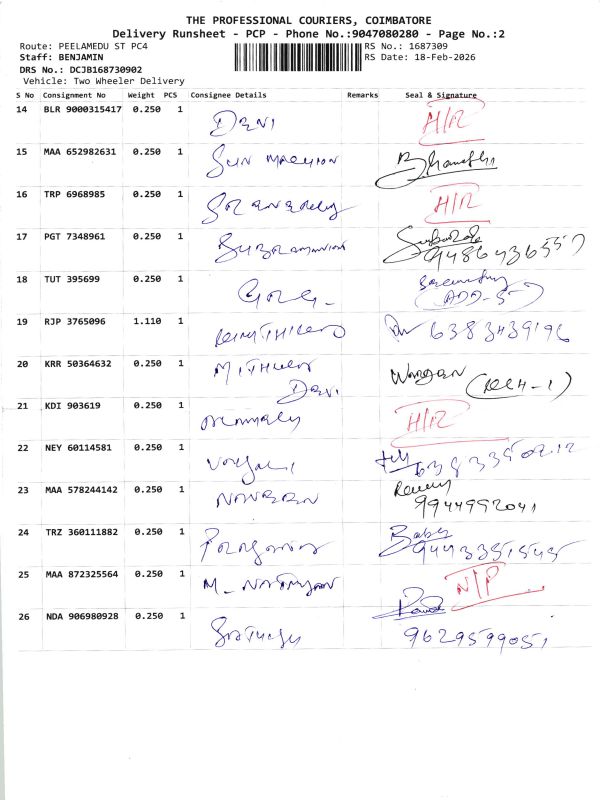 THE PROFESSIONAL COURIERS, COIMBATORE
Delivery Runsheet - PCP - Phone No.:9047080280 - Page No.:2
Route: PEELAMEDU ST PC4 RS No.: 1687309
Staff: BENJAMIN RS Date: 18-Feb-2026
DRS No.: DCJB168730902
Vehicle: Two Wheeler Delivery
S No Consignment No Weight PCS Consignee Details Remarks Seal & Signature
14 BLR 9000315417 0.250 1 DEVI H/R
15 MAA 652982631 0.250 1 SUN
16 TRP 6968985 0.250 1 H/R
17 PGT 7348961 0.250 1 9486436557
18 TUT 395699 0.250 1
19 RJP 3765096 1.110 1 6383439196
20 KRR 50364632 0.250 1 MITHUN DEVI
21 KDI 903619 0.250 1 H/R
22 NEY 60114581 0.250 1
23 MAA 578244142 0.250 1 NAVEEN 9944992041
24 TRZ 360111882 0.250 1 Baby 9443351545
25 MAA 872325564 0.250 1 M. N/P
26 NDA 906980928 0.250 1 9629599051